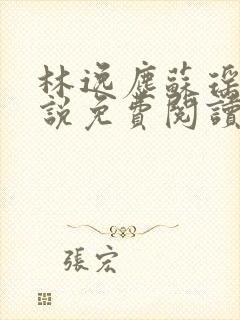 林逸塵蘇瑤
說免費閱讀
張宏